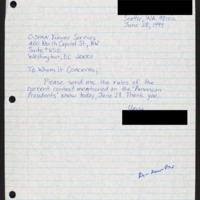 Seattle, WA 98102
June 28, 1999
C-SPAN Viewer Services
400 North Capitol St., NW
Suite #650
Washington, DC 20001
To Whom It Concerns,
Please send me the rules of the
current contest mentioned on the "American
Presidents" show today, June 28. Thank you.
Yours,